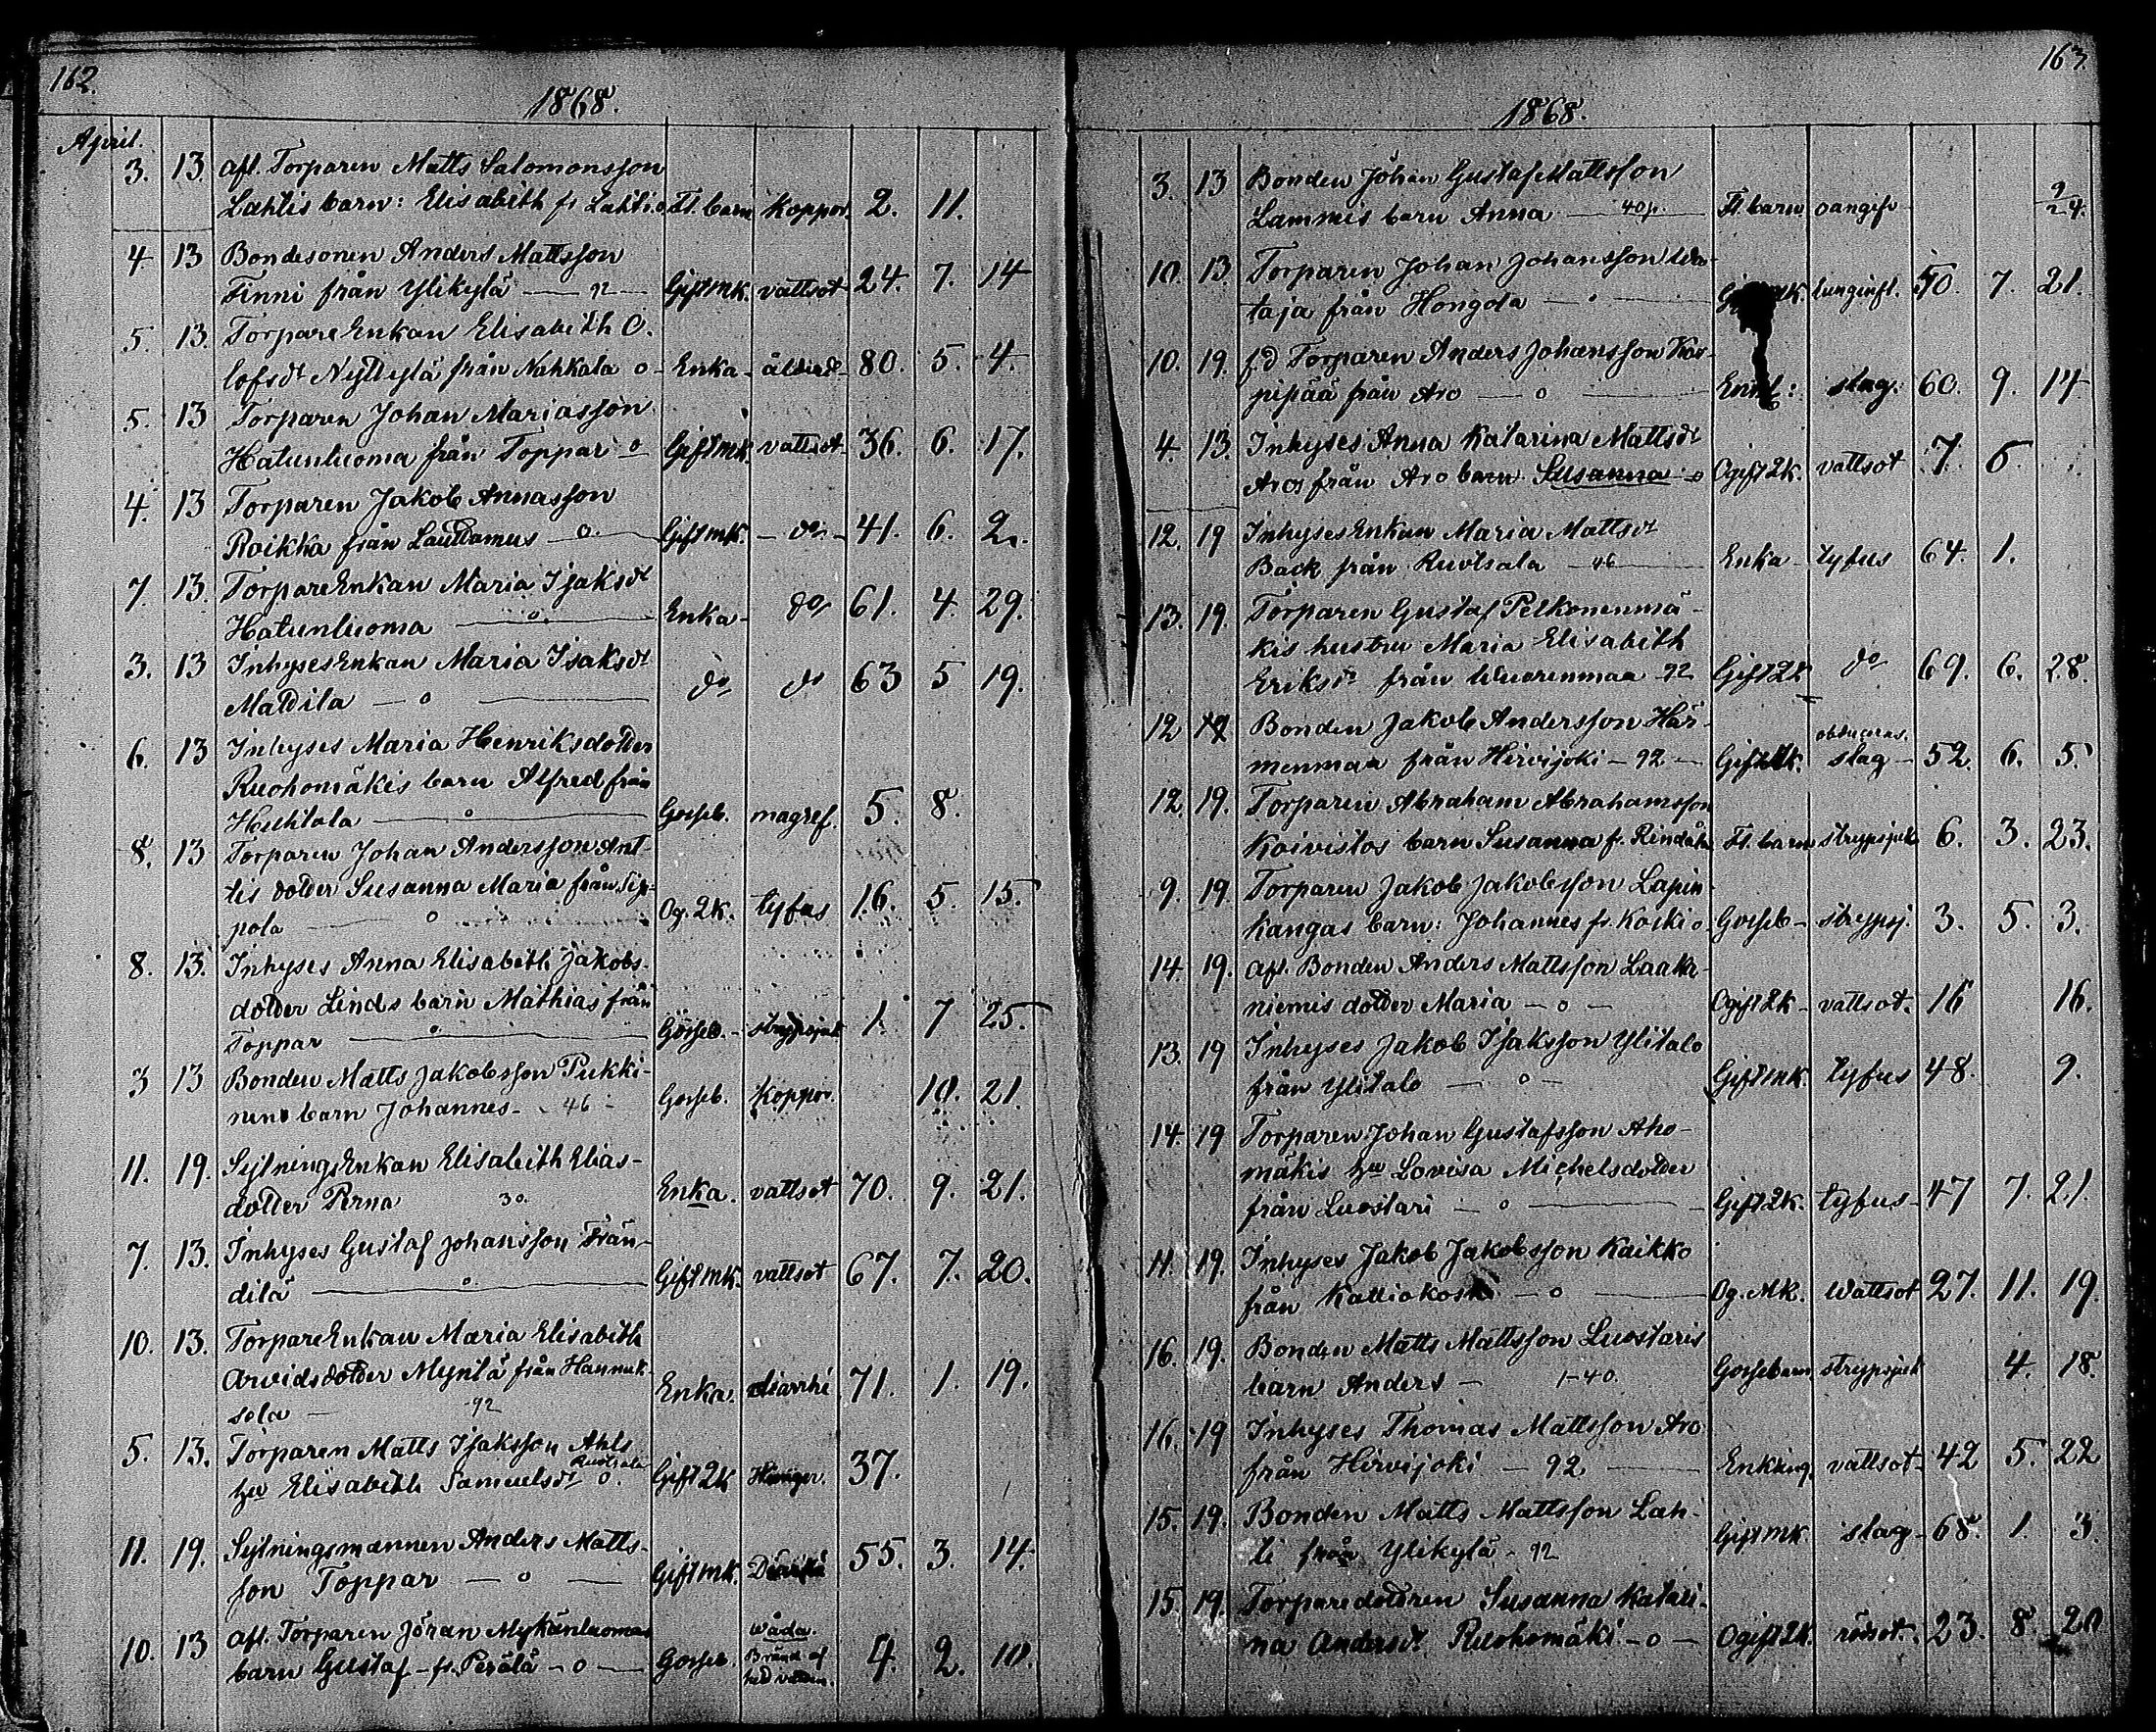 162.
1868.
April.
3. 13. Afl. Torparen Matts Salomonsson
Lahtis barn: Elisabeth fr Lahti o Fl. barn Koppor. 2. 11.
4. 13 Bondesonen Anders Mattsson
Finni från Ylikylä — 92 — Gift mk. vattsot 24. 7. 14
5. 13. TorpareEnkan Elisabeth O-
lofsdt Nyttylä från Nahkala o — Enka — ålderd 80. 5. 4.
5. 13 Torparen Johan Mariasson
Hatunluoma från Toppar o Gift mk. vattsot 36. 6. 17.
4. 13 Torparen Jakob Annasson
Roikka från Lauttamus — o — Gift mk. — do — 41. 6. 2.
7. 13. TorpareEnkan Maria Isaksdt
Hatunluoma — o — Enka — do 61. 4 29.
3. 13 InhysesEnkan Maria Isaksdt
Mattila — o — do do 63 5 19.
6. 13 Inhyses Maria Henriksdotter
Ruohomäkis barn Alfred från
Huhtala — o — Gosseb. magref. 5. 8.
8. 13 Torparen Johan Andersson Ant-
tis dotter Susanna Maria från Sip-
pola — o Og. 2k. tyfus 16. 5. 15.
8. 13. Inhyses Anna Elisabeth Jakobs-
dotter Linds barn Mathias från
Toppar — o — Gosseb. — strypsjuk 1. 7 25.
3 13 Bonden Matts Jakobsson Pukki-
nens barn Johannes — 46 — Gosseb. Koppor. 10. 21.
11. 19. SytningsEnkan Elisabeth Elias-
dotter Perna 30. Enka. vattsot 70. 9. 21.
7. 13. Inhyses Gustaf Johansson Frän-
dilä — o — Gift mk. vattsot 67. 7. 20.
10. 13. TorpareEnkan Maria Elisabeth
Arvidsdotter Myntä från Hannuk-
sela — 92 Enka. diarrhé 71. 1. 19.
5. 13. Torparen Matts Isaksson Ahls
Ruotsala
hu Elisabeth Samuelsdt o. Gift 2k Hunger. 37.
11. 19. Sytningsmannen Anders Matts-
son Toppar — o — Gift mk. 55. 3. 14.
10. 13 Afl. Torparen Jöran Mykänluomas
barn Gustaf — fr. Perälä — o — Gosseb. Wåda. Bränd af het vatten. 4. 2. 10.
163.
1868.
3. 13 Bonden Johan Gustaf Mattsson
Lammis barn Anna — 40 — Fl. barn oangifv 9/24.
10. 13. Torparen Johan Johansson
taja från Hongola — o — mk. lunginfl. 50. 7. 21.
10. 19. f.d Torparen Anders Johansson Kor-
pipää från Aro — o — slag. 60. 9. 14
4. 13. Inhyses Anna Katarina Mattsdt
Aros från Aro barn Susanna — o Ogift 2k. vattsot 7. 5.
12. 19 InhysesEnkan Maria Mattsdt
Back från Ruotsala — 46 — Enka — tyfus 64. 1.
13. 19. Torparen Gustaf Pelkonenmä-
kis hustru Maria Elisabeth
Eriksdt från Wuorenmaa — 92 Gift 2k do 69. 6. 28.
12 19 Bonden Jakob Andersson Här-
menmaa från Hirvijoki — 92 — Gift mk. slag — 52. 6. 5.
12. 19. Torparen Abraham Abrahamsson
Koivistos barn Susanna fr. Rindala Fl. barn strypsjuk 6. 3. 23.
9. 19. Torparen Jakob Jakobsson Lapin-
kangas barn: Johannes fr. Koski o Gosseb — strypsj. 3. 5. 3.
14. 19. Afl. Bonden Anders Mattsson Laaka-
niemis dotter Maria — o — Ogift 2k — vattsot. 16 16.
13. 19 Inhyses Jakob Isaksson Ylitalo
från Ylitalo — o — Gift mk. tyfus 48. 9.
14. 19 Torparen Johan Gustafsson Aho-
mäkis hu Lovisa Michelsdotter
från Luostari — o — Gift 2k. tyfus — 47 7. 21.
11. 19. Inhyses Jakob Jakobsson Kaikko
från Kalliokoski — o — Og. Mk. Wattsot 27. 11. 19.
16. 19. Bonden Matts Mattsson Luostaris
barn Anders — 1-40. Gossebarn strypsjuk 4. 18.
16. 19 Inhyses Thomas Mattsson Aro
från Hirvijoki — 92 — Enkling. vattsot — 42 5. 22
15. 19. Bonden Matts Mattsson Lah-
ti från Ylikylä — 92 Gift mk. slag — 68. 1. 3.
15. 19. Torparedottren Susanna Katari-
na Andersdt. Ruohomäki — o — Ogift 2k. rödsot. 23. 8. 20